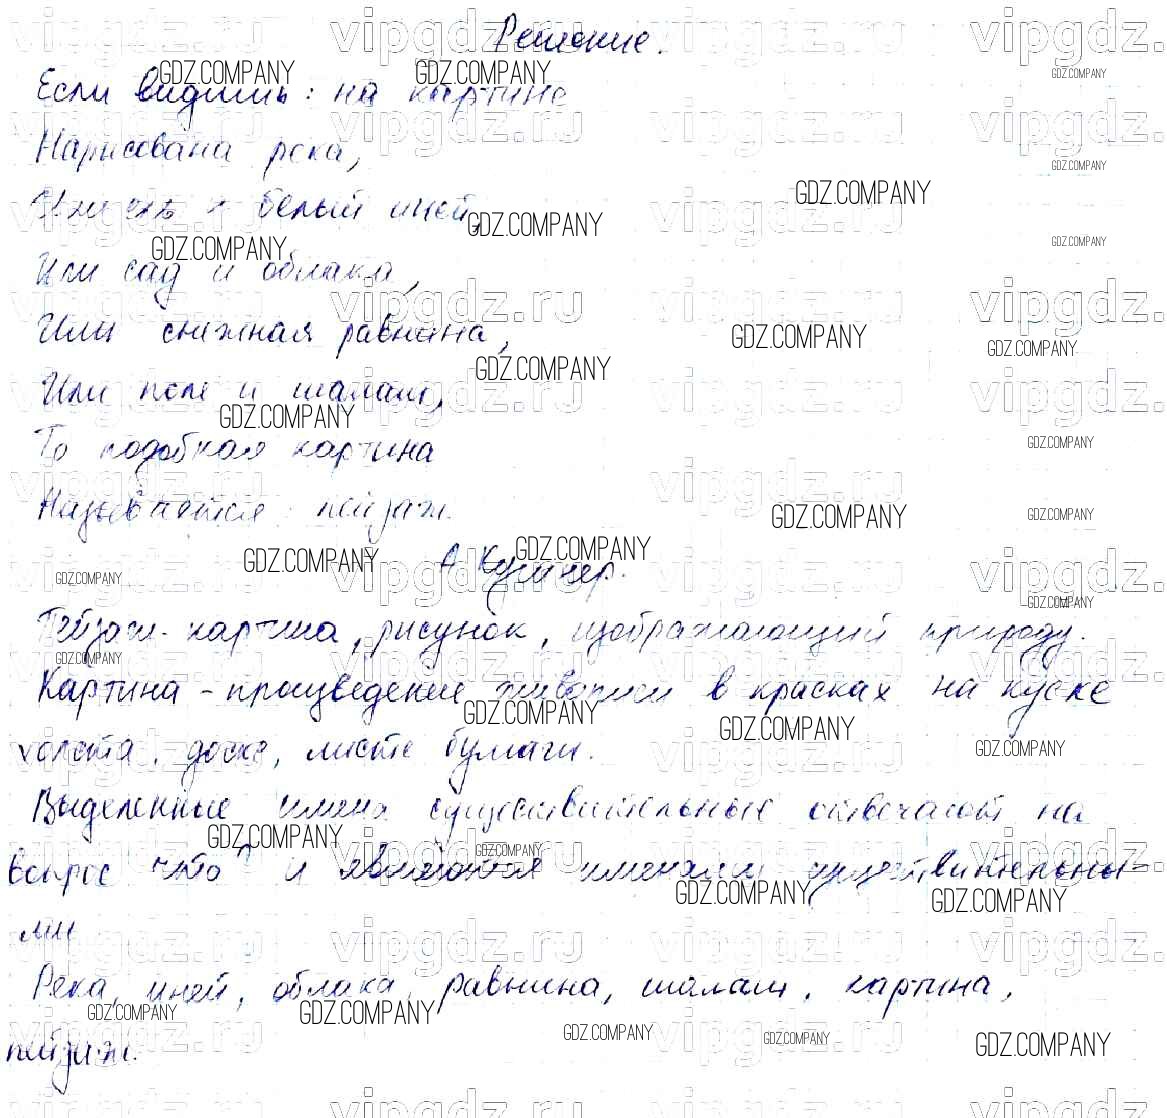 Решение.
Если видишь: на картине
Нарисована река,
Или ель и белый иней,
Или сад и облака,
Или снежная равнина,
Или поле и шалаш,
То подобная картина
Называется пейзаж.
А. Кушнер.
Пейзаж - картина, рисунок, изображающий природу.
Картина - произведение живописи в красках на куске
холста, доске, листе бумаги.
Выделенные имена существительные отвечают на
вопрос "что" и являются именами существительны-
ми
Река, иней, облака, равнина, шалаш, картина,
пейзаж.